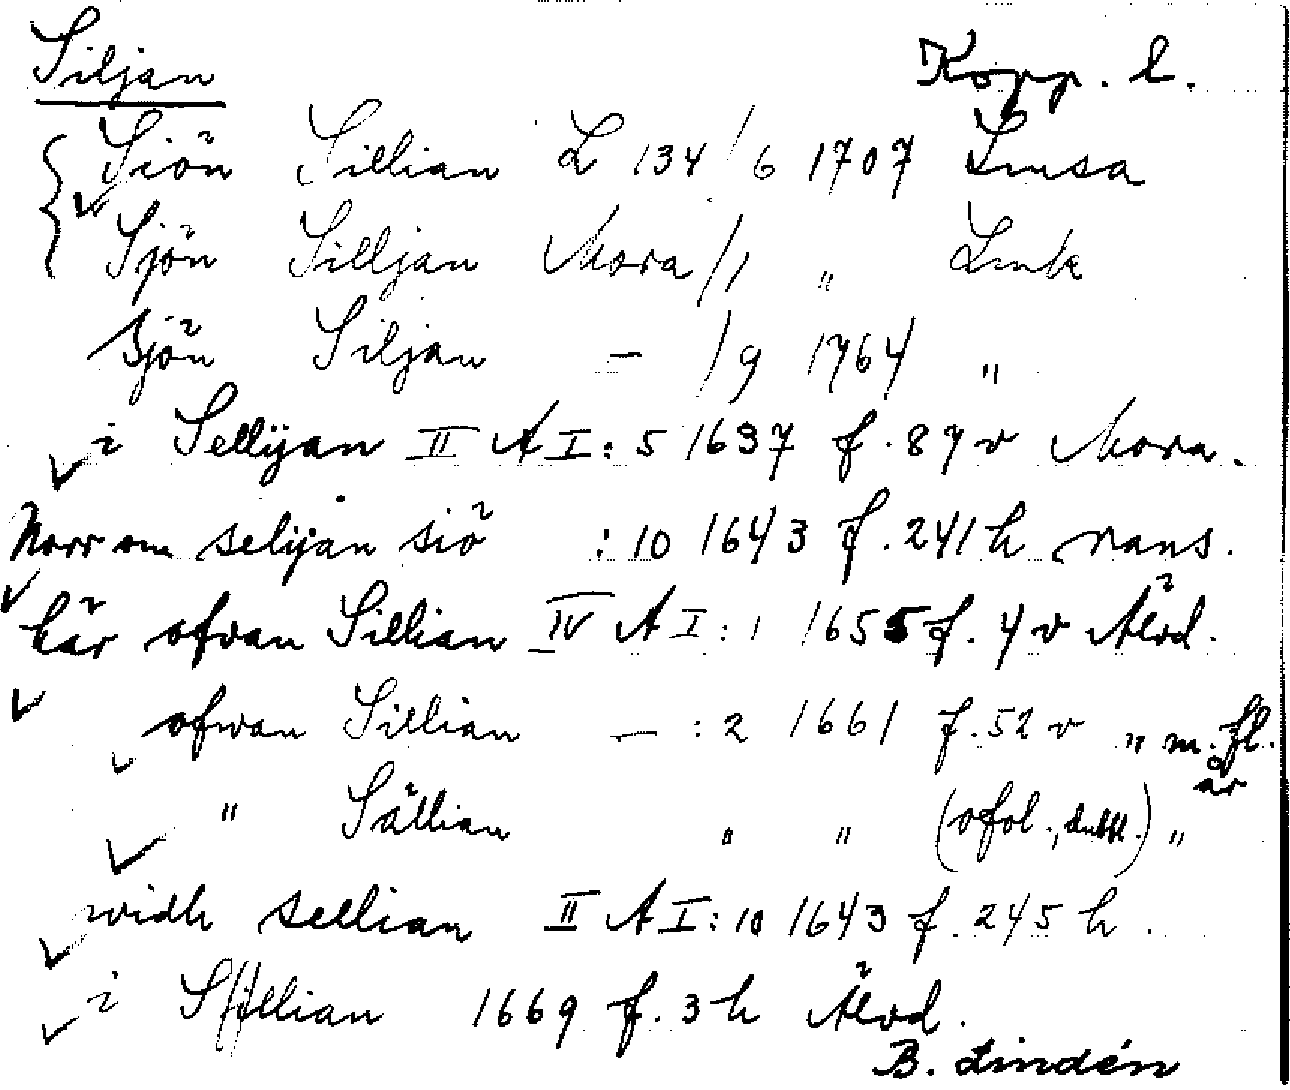 Siljan Kopp. l.
Siön Sillian L 134/6 1707 Lmsa
Sjön Silljan Mora/1 " Lmk
Sjön Siljan — /9 1764 "
i Sellijan II A I: 5 1637 f. 87 v Mora.
Norr om selijan siö : 10 1643 f. 241 h vans.
här ofvan Sillian IV A I: 1 1655 f. 4 v Älvd.
ofwan Sillian — : 2 1661 f. 52 v " m. fl. år
" Sällian " " (ofol., dubbl.) "
widh sellian II A I: 10 1643 f. 245 h.
i Sillian 1669 f. 3 h Älvd.
B. Lindén